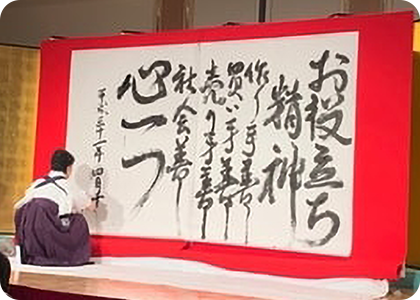 お役立ち
精神
作り手善し
買い手善し
売り手善し
社会善し
心一つ
平成三十一年四月